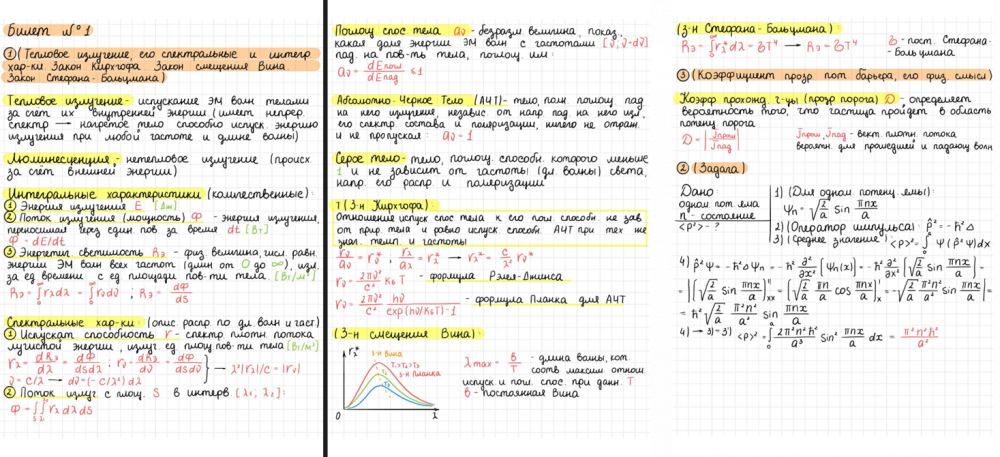 Билет №1
① (Тепловое излучение, его спектральные и интегр
хар-ки Закон Кирхгофа Закон смещения Вина.
Закон Стефана-Больцмана)
Тепловое излучение - испускание ЭМ волн телами
за счет их внутренней энергии (имеет непрер.
спектр → нагретое тело способно испуск. энергию
излучения при любой частоте и длине волны)
Люминесценция - нетепловое излучение (происх.
за счёт внешней энергии)
Интегральные характеристики (количественные):
① Энергия излучения E [Дж]
② Поток излучения (мощность) Ф - энергия излучения,
переносимая через един пов за время dt [Вт]
Ф = dE/dt
③ Энергетич светимость Rэ - физ. величина, числ. равн.
энергии ЭМ волн всех частот (длин от 0 до ∞), изл.
за ед времени с ед площади пов-ти тела [Вт/м²]
Rэ = ∫₀^∞ rλdλ = ∫₀^∞ rνdν ; Rэ = dФ/dS
Спектральные хар-ки (опис распр. по дл. волн и част)
① Испускат способность r - спектр. плотн потока
лучистой энергии, излуч. ед площ пов-ти тела [Вт/м³]
rλ = dRэ/dλ = dФ/dSdλ ; rν = dRэ/dν = dФ/dSdν
ν = c/λ → dν = (-c/λ²) dλ } → λ²|rλ|/c = |rν|
② Поток излуч. с площ. S в интерв [λ₁, λ₂]:
Ф = ∫∫ rλ dλ dS
Поглощ спос. тела aν - безразм величина, показ,
какая доля энергии ЭМ волн с частотами [ν, ν-dν]
пад. на пов-ть тела, поглощ. им:
aν = dEпогл/dEпад ≤ 1
Абсолютно Чёрное Тело (АЧТ) - тело, полн поглощ. пад
на него излучение, независ от напр пад на него изл,
его спектр состава и поляризации, ничего не отраж.
и не пропускал: aν = 1
Серое тело - тело, поглощ. способн. которого меньше
1 и не зависит от частоты (дл. волны) света,
напр. его распр и поляризации
T (З-н Кирхгофа)
Отношение испуск спос тела к его погл способн. не зав
от прир тела и равно испуск. способн. АЧТ при тех же
знач. темп. и частоты
rν/aν = rν* ; rλ/aλ = rλ* → rλ* = c/λ² rν*
rν = 2πν²/c² KбT - формула Рэлея-Джинса
rν = 2πν²/c² hν/exp(hν/KбT)-1 - формула Планка для АЧТ
(З-н смещения Вина):
rλ*
з-н Вина
T₁>T₂>T₃
з-н Планка
T₂
T₃
0
λ
λmax = b/T - длина волны, кот
соотв максим откон
испуск и погл. спос. при данн. T
b - постоянная Вина
(З-н Стефана-Больцмана)
Rэ = ∫₀^∞ rλ*dλ = σT⁴ → Rэ = σT⁴ σ - пост. Стефана-
Больцмана
③ (Коэффициент прозр пот барьера, его физ. смысл)
Коэфф прохожд. г-цы (прозр порога) D - определяет
вероятность того, что частица пройдет в область
потенц порога
D = |jпрош/jпад| jпрош, jпад - вект плотн. потока
вероятн. для прошедшей и падающ волн
② (Задача)
Дано:
одном. пот. яма
n - состояние
<p²> - ?
1) (Для одном потенц. ямы):
Ψn = √(2/a) sin πnx/a
2) (Оператор импульса): p̂² = -ħ²Δ
3) (Среднее значение): <p²> = ∫₀^a Ψ(p̂²Ψ)dx
4) p̂²Ψ = -ħ²ΔΨn = -ħ² ∂²/∂x² [Ψn(x)] = -ħ² ∂²/∂x² [√(2/a) sin πnx/a] =
= |[√(2/a) sin πnx/a]''xx = [√(2/a) πn/a cos πnx/a]'x = -√(2/a) π²n²/a² sin πnx/a| =
= ħ² √(2/a) π²n²/a² sin πnx/a
4) → 3) - 3') <p²> = ∫₀^a 2π²n²ħ²/a³ sin² πnx/a dx = π²n²ħ²/a²